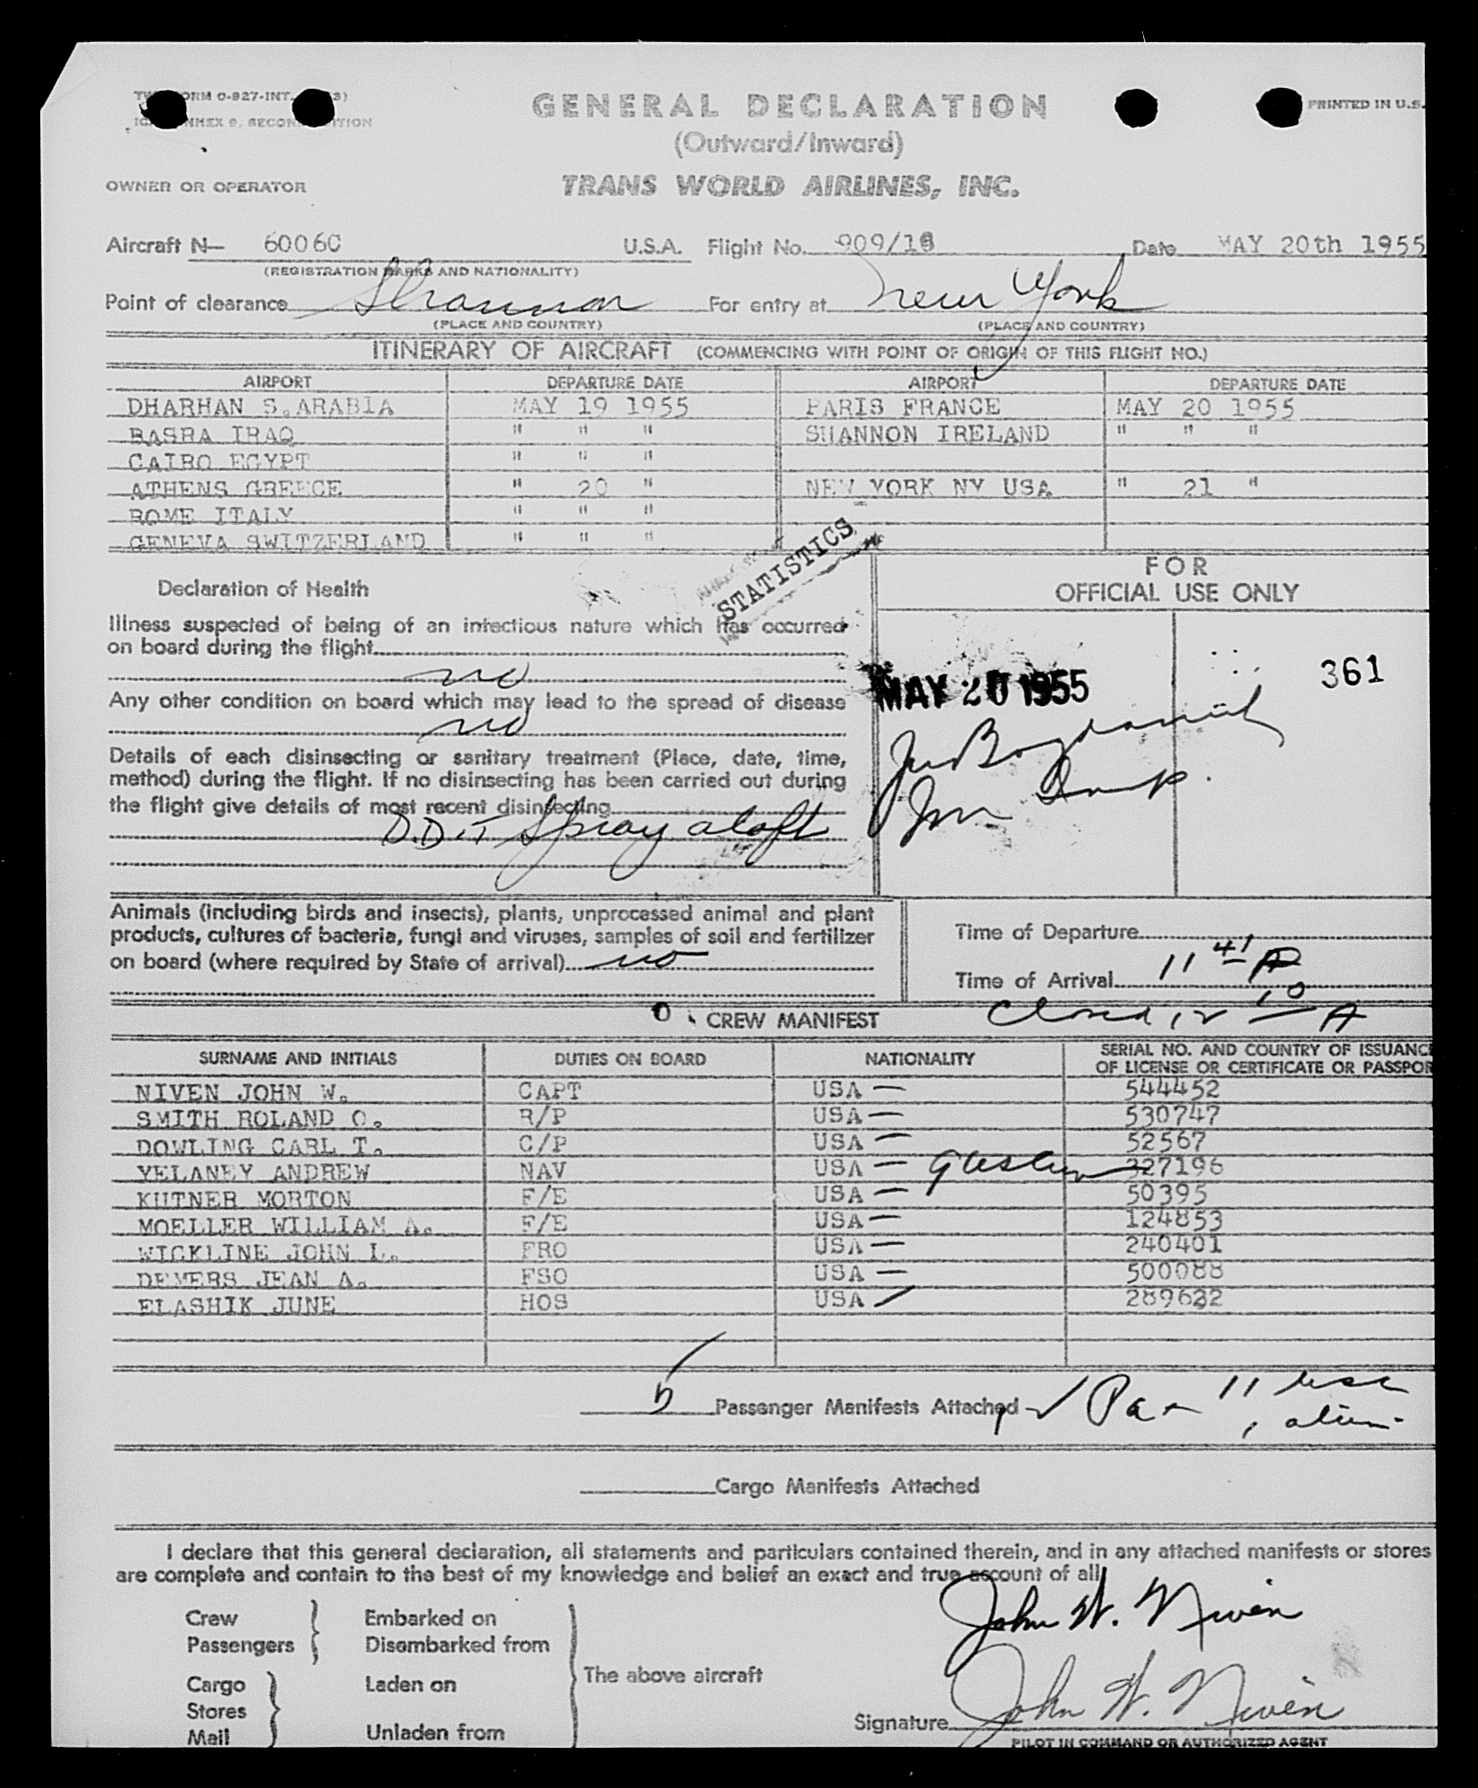 GENERAL DECLARATION
PRINTED IN U.S.
(Outward/Inward)
OWNER OR OPERATOR
TRANS WORLD AIRLINES, INC.
Aircraft N— 6006C U.S.A. Flight No. 909/18 Date MAY 20th 1955
(REGISTRATION MARKS AND NATIONALITY)
Point of clearance Shannon For entry at New York
(PLACE AND COUNTRY) (PLACE AND COUNTRY)
ITINERARY OF AIRCRAFT (COMMENCING WITH POINT OF ORIGIN OF THIS FLIGHT NO.)
AIRPORT DEPARTURE DATE AIRPORT DEPARTURE DATE
DHARHAN S.ARABIA MAY 19 1955 PARIS FRANCE MAY 20 1955
BASRA IRAQ " " " SHANNON IRELAND " " "
CAIRO EGYPT " " "
ATHENS GREECE " 20 " NEW YORK NY USA " 21 "
ROME ITALY " " "
GENEVA SWITZERLAND " " "
STATISTICS
FOR
OFFICIAL USE ONLY
Declaration of Health
Illness suspected of being of an infectious nature which has occurred
on board during the flight
no
MAY 20 1955 361
Any other condition on board which may lead to the spread of disease
no
Details of each disinsecting or sanitary treatment (Place, date, time,
method) during the flight. If no disinsecting has been carried out during
the flight give details of most recent disinsecting
D.D.T Spray aloft
Animals (including birds and insects), plants, unprocessed animal and plant
products, cultures of bacteria, fungi and viruses, samples of soil and fertilizer
on board (where required by State of arrival) no
Time of Departure
Time of Arrival 11 41 P
Closed 12 10 A
0 CREW MANIFEST
SURNAME AND INITIALS DUTIES ON BOARD NATIONALITY SERIAL NO. AND COUNTRY OF ISSUANC
OF LICENSE OR CERTIFICATE OR PASSPOR
NIVEN JOHN W. CAPT USA — 544452
SMITH ROLAND O. R/P USA — 530747
DOWLING CARL T. C/P USA — 52567
YELANEY ANDREW NAV USA — 327196
KUTNER MORTON F/E USA — 50395
MOELLER WILLIAM A. F/E USA — 124853
WICKLINE JOHN L. FRO USA — 240401
DEMERS JEAN A. FSO USA — 500088
ELASHIK JUNE HOS USA 289632
5 Passenger Manifests Attached ✓ Pax 11 usc
1 alien
Cargo Manifests Attached
I declare that this general declaration, all statements and particulars contained therein, and in any attached manifests or stores
are complete and contain to the best of my knowledge and belief an exact and true account of all
John W. Niven
Crew Embarked on
Passengers Disembarked from
Cargo Laden on The above aircraft
Stores
Mail Unladen from
Signature John W. Niven
PILOT IN COMMAND OR AUTHORIZED AGENT